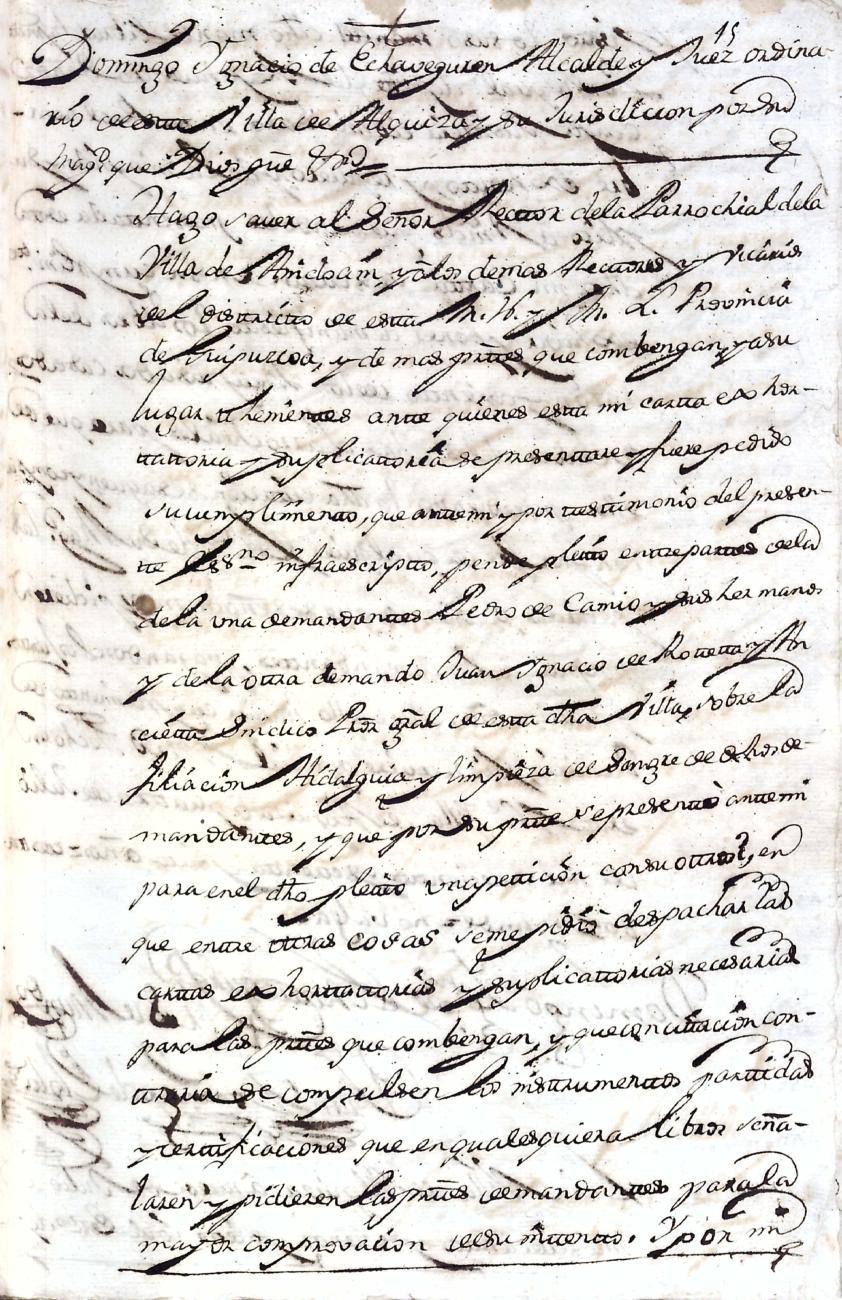 15
Domingo Ygnacio de Echaveguren Alcalde y Juez ordina-
rio de esta Villa de Alquiza y su Jurisdicion por su
Magd que Dios gue
Hago saver al Señor Rector de la Parrochial de la
Villa de Andoain, y a los demas Rectores y vicarios
del districto de esta M. N. y M. L. Provincia
de Guipuzcoa, y demas prtes que combengan, y a su
lugar thenientes ante quienes esta mi carta exhor-
tattoria y suplicattoria se presenttare y fuere pedido
su cumplimento, que ante mi y por testimonio del presen-
te Essno infraescripto, pende pleito entre partes de la
de la una demandantes Pedro de Camio y sus hermanos
y de la ottra demando Juan Ygnacio de Rotteta y An
cieta Sindico Pror gral de esta dha Villa, sobre la
filiacion Hidalguia y limpieza de sangre de dhos de-
mandantes, y que por su prte se presento ante mi
para en el dho pleito una petticion con su ottrosi, en
que entre ottras cosas se me pidio despachar las
carttas exhorttattorias y suplicattorias necesarias
para las prtes que combengan, y que con cittacion con-
traria se compulsen los instrumenttos partidas
y certtificaciones que en qualesquiera libros seña-
laren y pidieren las prtes demandantes para la
mayor comprovacion de su intento. Y por mi